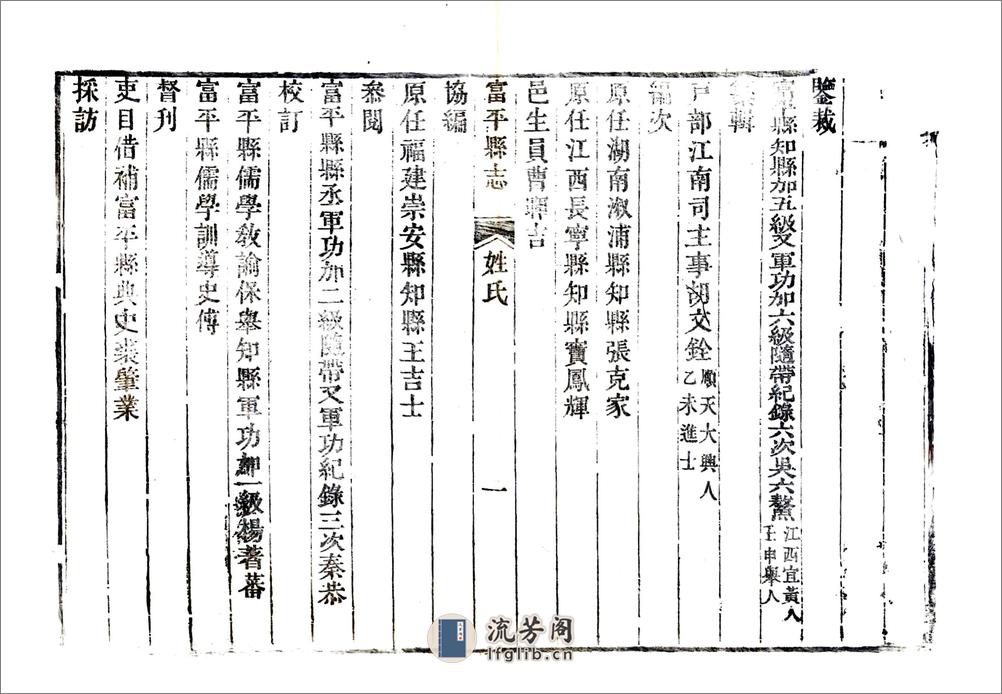 鑒裁
富平縣知縣加五級又軍功加六級隨帶紀錄六次吳六鰲江西宜黃人壬申舉人
纂輯
戶部江南司主事胡文銓順天大興人乙未進士
編次
原任湖南漵浦縣知縣張克家
原任江西長寧縣知縣竇鳳輝
邑生員曹驥吉
富平縣志 姓氏 一
協編
原任福建崇安縣知縣王吉士
參閱
富平縣縣丞軍功加二級隨帶又軍功紀錄三次秦恭
校訂
富平縣儒學敎諭保舉知縣軍功加一級楊蓍蕃
富平縣儒學訓導史傳
督刊
吏目借補富平縣典史裘肇業
採訪
流芳阁
lfglib.cn